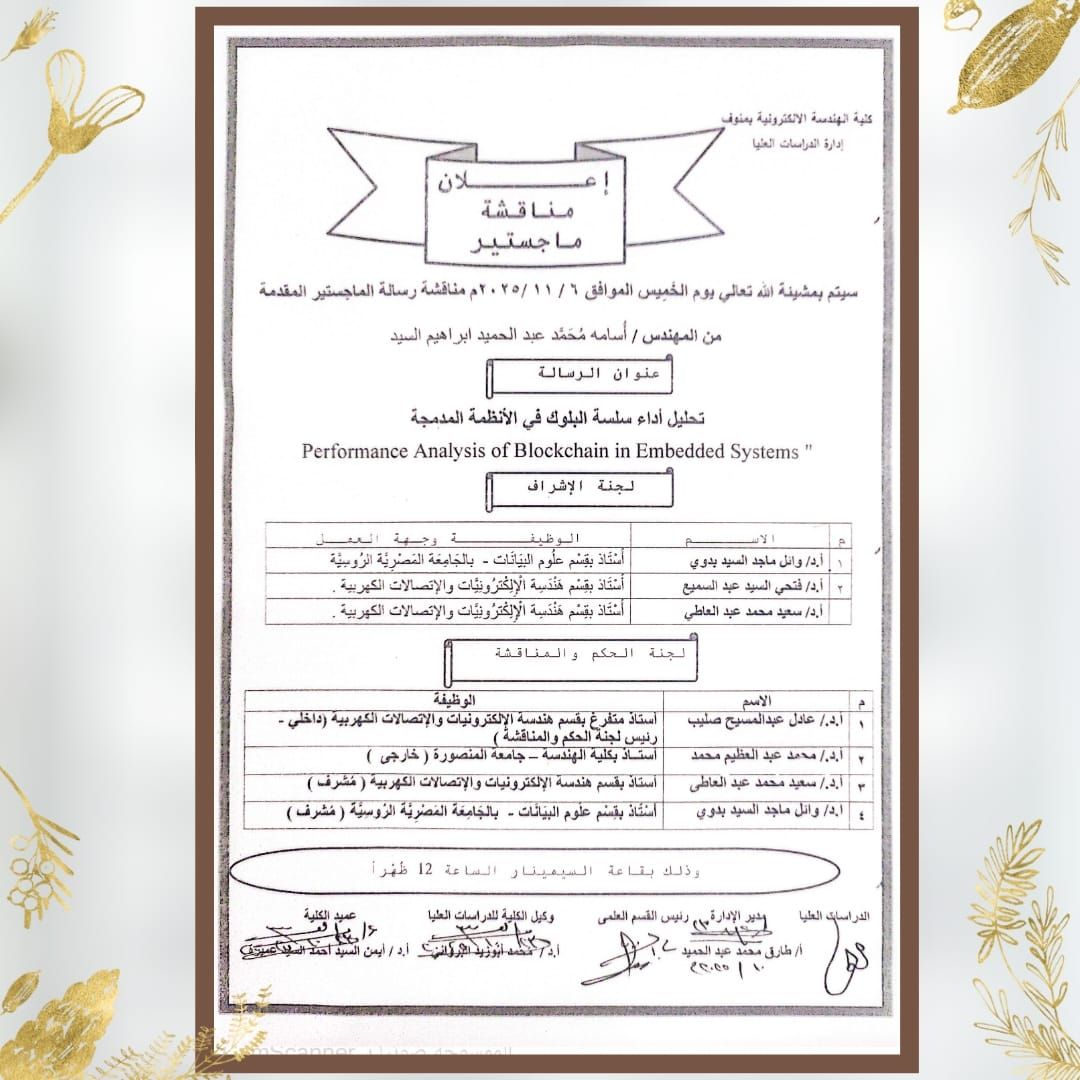 كلية الهندسة الالكترونية بمنوف
إدارة الدراسات العليا
إعـــــــلان
مناقشة
ماجستير
سيتم بمشيئة الله تعالي يوم الخَمِيس الموافق ٦ / ١١ /٢٠٢٥م مناقشة رسالة الماجستير المقدمة
من المهندس / أسامه مُحَمَّد عبد الحميد ابراهيم السيد
عنوان الرسالة
تحليل أداء سلسة البلوك في الأنظمة المدمجة
Performance Analysis of Blockchain in Embedded Systems "
لجنة الإشراف
م الاســـــم الوظيفـــــــة وجهة العمـــل
١ أ.د/ وائل ماجد السيد بدوي أُسْتَاذ بقِسْم عُلُوم البَيَانَات - بالجَامِعَة المَصْرِيَّة الرُوسِيَّة
٢ أ.د/ فتحي السيد عبد السميع أُسْتَاذ بقِسْم هَنْدَسِة الْإِلِكْترُونِيَّات والإتصالات الكهربية .
أ.د/ سعيد محمد عبد العاطي أُسْتَاذ بقِسْم هَنْدَسِة الْإِلِكْترُونِيَّات والإتصالات الكهربية .
لجنة الحكم والمناقشة
م الاسم الوظيفة
١ أ.د./ عادل عبدالمسيح صليب استاذ متفرغ بقسم هندسة الإلكترونيات والإتصالات الكهربية (داخلي -
رئيس لجنة الحكم والمناقشة )
٢ أ.د./ محمد عبد العظيم محمد أستــاذ بكلية الهندسة – جامعة المنصورة ( خارجى )
٣ أ.د./ سعيد محمد عبد العاطى أستاذ بقسم هندسة الإلكترونيات والإتصالات الكهربية ( مُشرف )
٤ أ.د/ وائل ماجد السيد بدوي أُسْتَاذ بقِسْم عُلُوم البَيَانَات - بالجَامِعَة المَصْرِيَّة الرُوسِيَّة ( مُشرف )
وذلك بقاعة السيمينار الساعة 12 ظُهْرَاً
الدراسات العليا مدير الإدارة رئيس القسم العلمى وكيل الكلية للدراسات العليا عميد الكلية
أ/ طارق محمد عبد الحميد أ.د/ محمد أبوزيد البرواني أ.د / أيمن السيد أحمد السيد عميره